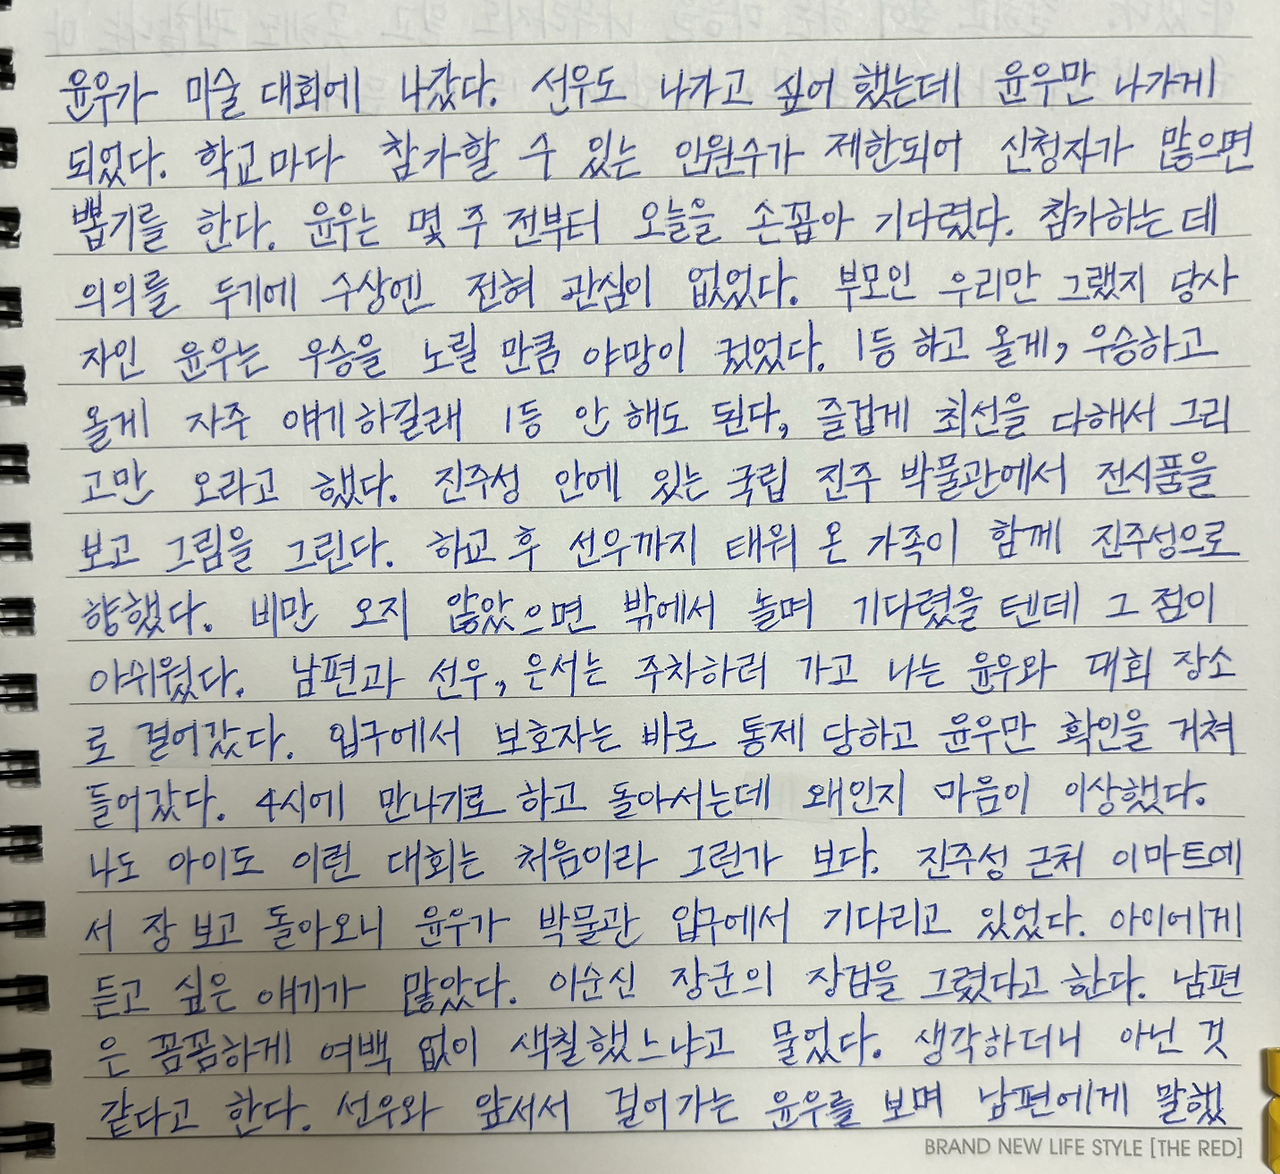 윤우가 미술 대회에 나갔다. 선우도 나가고 싶어 했는데 윤우만 나가게
되었다. 학교마다 참가할 수 있는 인원수가 제한되어 신청자가 많으면
뽑기를 한다. 윤우는 몇 주 전부터 오늘을 손꼽아 기다렸다. 참가하는 데
의의를 두기에 수상엔 전혀 관심이 없었다. 부모인 우리만 그랬지 당사
자인 윤우는 우승을 노릴 만큼 야망이 컸었다. 1등 하고 올게, 우승하고
올게 자주 얘기하길래 1등 안 해도 된다, 즐겁게 최선을 다해서 그리
고만 오라고 했다. 진주성 안에 있는 국립 진주 박물관에서 전시품을
보고 그림을 그린다. 하교 후 선우까지 태워 온 가족이 함께 진주성으로
향했다. 비만 오지 않았으면 밖에서 놀며 기다렸을 텐데 그 점이
아쉬웠다. 남편과 선우, 은서는 주차하러 가고 나는 윤우와 대회 장소
로 걸어갔다. 입구에서 보호자는 바로 통제 당하고 윤우만 확인을 거쳐
들어갔다. 4시에 만나기로 하고 돌아서는데 왜인지 마음이 이상했다.
나도 아이도 이런 대회는 처음이라 그런가 보다. 진주성 근처 이마트에
서 장 보고 돌아오니 윤우가 박물관 입구에서 기다리고 있었다. 아이에게
듣고 싶은 얘기가 많았다. 이순신 장군의 장검을 그렸다고 한다. 남편
은 꼼꼼하게 여백 없이 색칠했느냐고 물었다. 생각하더니 아닌 것
같다고 한다. 선우와 앞서서 걸어가는 윤우를 보며 남편에게 말했
BRAND NEW LIFE STYLE [THE RED]